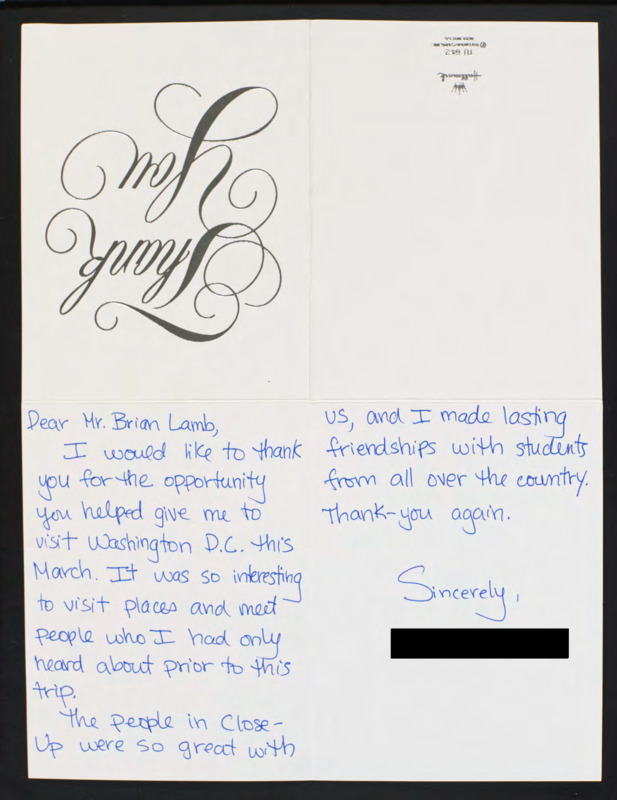 Thank
You
Hallmark
Dear Mr. Brian Lamb,
I would like to thank
you for the opportunity
you helped give me to
visit Washington D.C. this
March. It was so interesting
to visit places and meet
people who I had only
heard about prior to this
trip.
The people in Close-
Up were so great with
us, and I made lasting
friendships with students
from all over the country.
Thank-you again.
Sincerely,